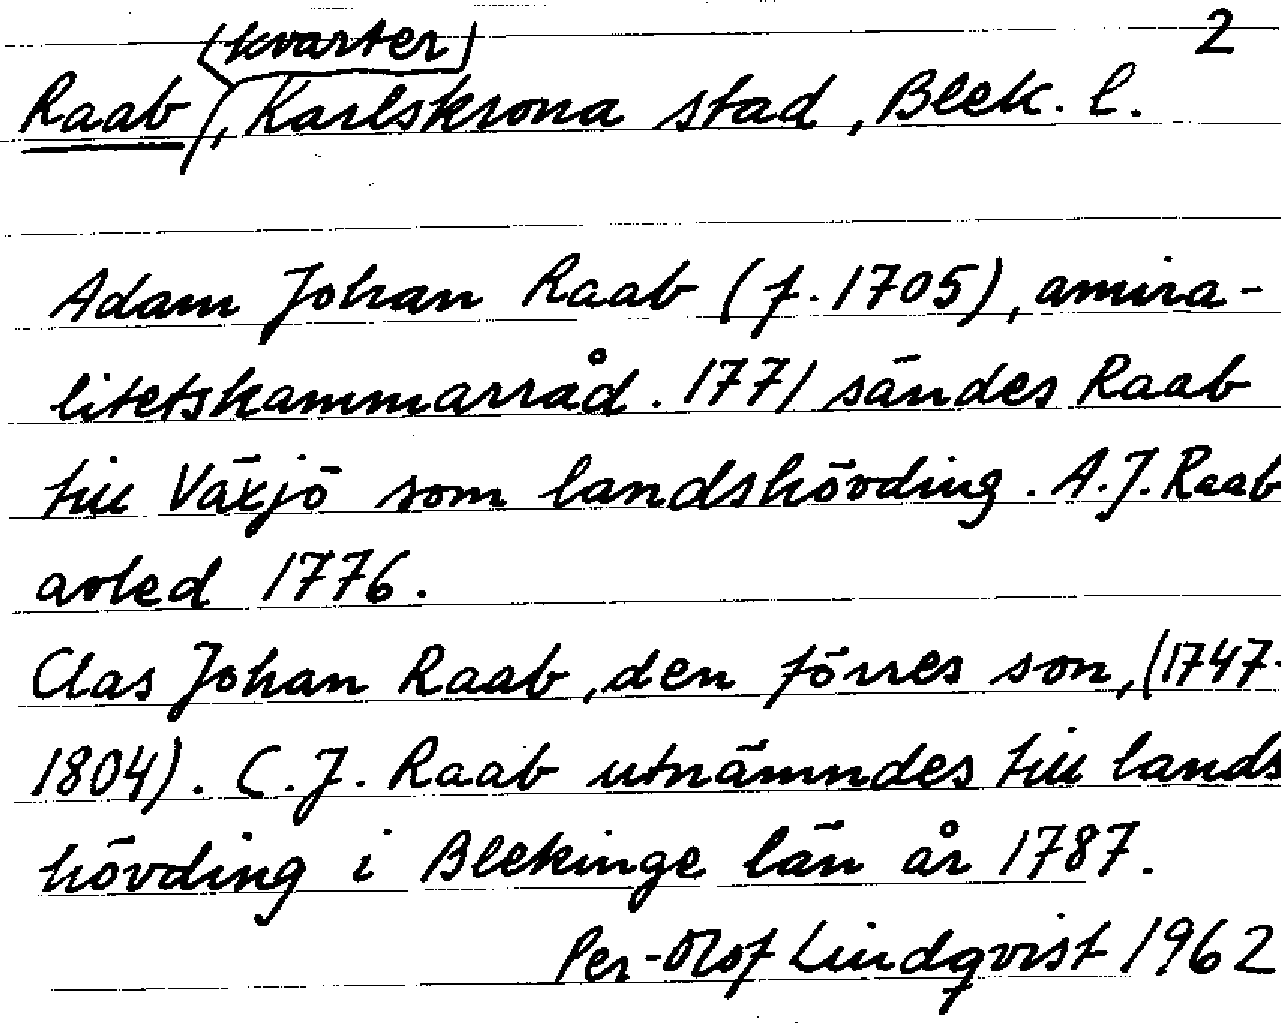 (kvarter) 2
Raab, Karlskrona stad, Blek. l.
Adam Johan Raab (f. 1705), amira-
litetskammarråd. 1771 sändes Raab
till Växjö som landshövding. A.J. Raab
avled 1776.
Clas Johan Raab, den förres son, (1747-
1804). C.J. Raab utnämndes till lands
hövding i Blekinge län år 1787.
Per-Olof Lindqvist 1962